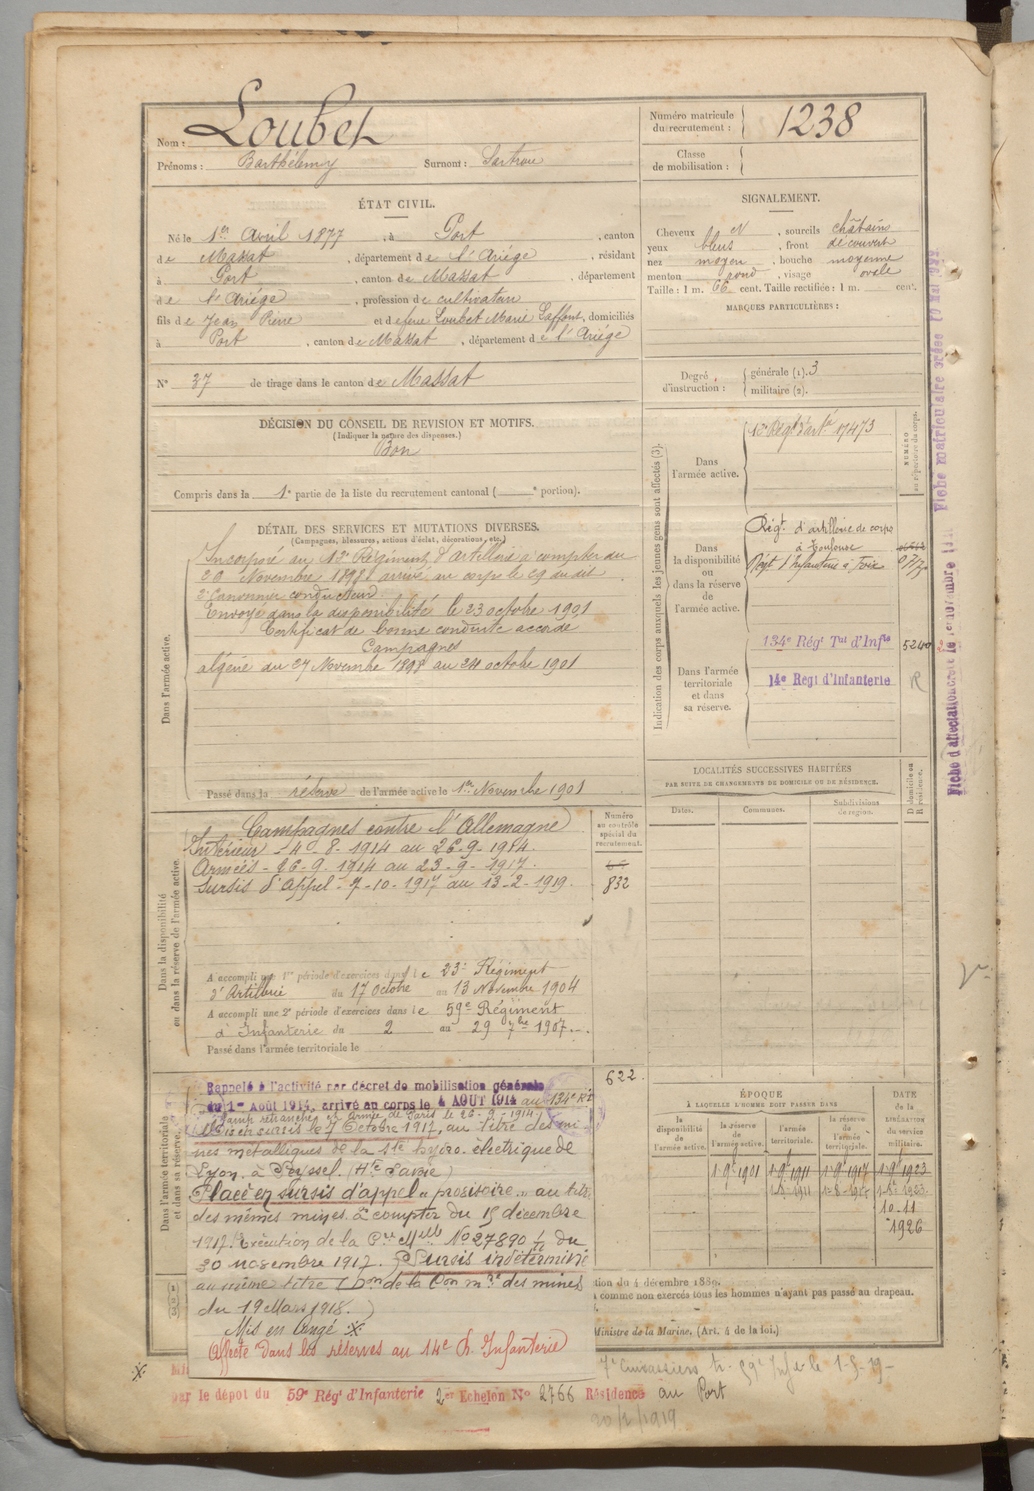 Nom : Loubet
Prénoms : Barthélemy Surnom : Sartrou
Numéro matricule du recrutement : 1238
Classe de mobilisation :
ÉTAT CIVIL.
Né le 1er Avril 1877, à Port, canton
de Massat, département de l'Ariége, résidant
à Port, canton de Massat, département
de l'Ariége, profession de cultivateur
fils de Jean Pierre et de feue Loubet Marie Laffont, domiciliés
à Port, canton de Massat, département de l'Ariége
N° 37 de tirage dans le canton de Massat
SIGNALEMENT.
Cheveux N, sourcils châtains
yeux bleus, front découvert
nez moyen, bouche moyenne
menton rond, visage ovale
Taille : 1 m. 66 cent. Taille rectifiée : 1 m. cent.
MARQUES PARTICULIÈRES :
Degré d'instruction : générale (1). 3
militaire (2).
DÉCISION DU CONSEIL DE REVISION ET MOTIFS.
(Indiquer la nature des dispenses.)
Bon
Compris dans la 1e partie de la liste du recrutement cantonal ( e portion).
DÉTAIL DES SERVICES ET MUTATIONS DIVERSES.
(Campagnes, blessures, actions d'éclat, décorations, etc.)
Dans l'armée active.
Incorporé au 13e Régiment d'Artillerie à compter du
20 Novembre 1898 arrivé au corps le 29 du dit
2e Canonnier conducteur
Envoyé dans la disponibilité le 23 octobre 1901
Certificat de bonne conduite accordé
Campagnes
algérie du 27 Novembre 1898 au 24 octobre 1901
Passé dans la réserve de l'armée active le 1er Novembre 1901
Indication des corps auxquels les jeunes gens sont affectés (3).
NUMÉRO au répertoire du corps.
Dans l'armée active.
13e Régt d'arte 17473
Dans la disponibilité ou dans la réserve de l'armée active.
Régt. d'artillerie de corps
à Toulouse
Régt d'Infanterie à Foix
Dans l'armée territoriale et dans sa réserve.
134e Régt Tal d'Infie 5240
14e Régt d'Infanterie R
LOCALITÉS SUCCESSIVES HABITÉES
PAR SUITE DE CHANGEMENTS DE DOMICILE OU DE RÉSIDENCE.
D domicile ou R résidence.
Dates. Communes. Subdivisions de région.
Dans la disponibilité ou dans la réserve de l'armée active.
Numéro au contrôle spécial du recrutement.
832
Campagnes contre l'Allemagne
Intérieur - 4-8-1914 au 26-9-1914.
Armées - 26-9-1914 au 23-9-1917.
Sursis d'Appel - 7-10-1917 au 13-2-1919.
A accompli une 1re période d'exercices dans le 23e Régiment
d'Artillerie du 17 Octobre au 13 Novembre 1904
A accompli une 2e période d'exercices dans le 59e Régiment
d'Infanterie du 2 au 29 7bre 1907
Passé dans l'armée territoriale le
622
Dans l'armée territoriale et dans sa réserve.
Rappelé à l'activité par décret de mobilisation générale
du 1er Août 1914, arrivé au corps le 4 AOUT 1914 au 134e RI
Camp retranché et Armée de Paris le 26-9-1914
Mis en sursis le 7 Octobre 1917, au titre des mi
nes métalliques de la Sté hydro. électrique de
Lyon. à Seyssel (Hte Savoie)
Placé en sursis d'appel « provisoire » au titre
des mêmes mines à compter du 15 décembre
1917. Exécution de la Dre Melle No 27890 du
30 novembre 1917. Sursis indéterminé
au même titre
du 19 Mars 1918.
Mis en congé
Affecté dans les réserves au 14e R. Infanterie
ÉPOQUE
À LAQUELLE L'HOMME DOIT PASSER DANS
la disponibilité de l'armée active. la réserve de l'armée active. l'armée territoriale. la réserve de l'armée territoriale.
DATE de la LIBÉRATION du service militaire.
1-9bre 1901 1-9bre 1911 1-9bre 1917 1-9bre 1923
10-11
1926
tion du 4 décembre 1889.
à comme non exercés tous les hommes n'ayant pas passé au drapeau.
Ministre de la Marine. (Art. 4 de la loi.)
par le dépôt du 59e Régt d'Infanterie 2er Echelon No 2766 Résidence au Port
20/2/1919